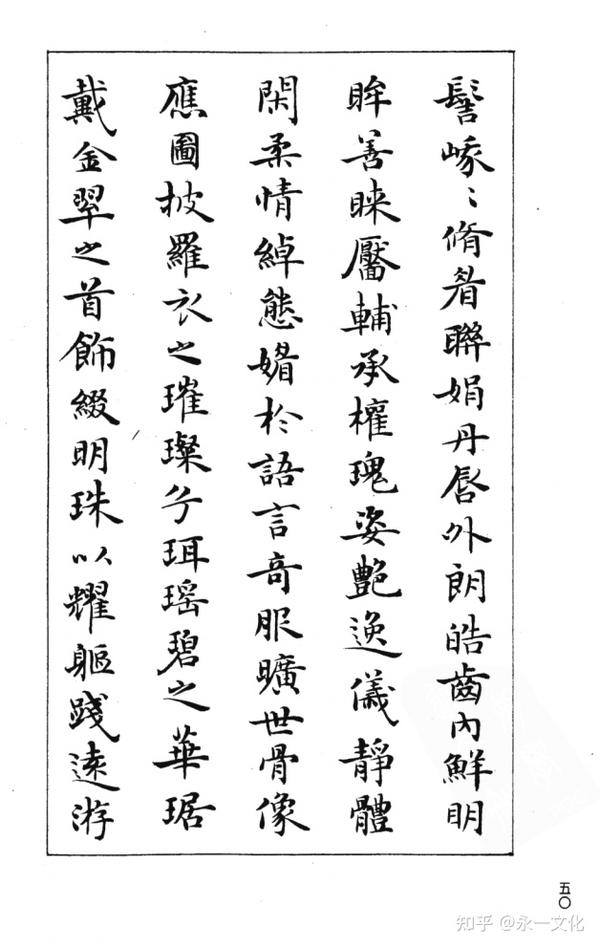 髻峩〻脩眉聯娟丹脣外朗皓齒內鮮明
眸善睞靨輔承權瑰姿艷逸儀靜體
閑柔情綽態媚於語言奇服曠世骨像
應圖披羅衣之璀璨兮珥瑶碧之華琚
戴金翠之首飾綴明珠以耀軀踐遠游
五〇
知乎 @永一文化